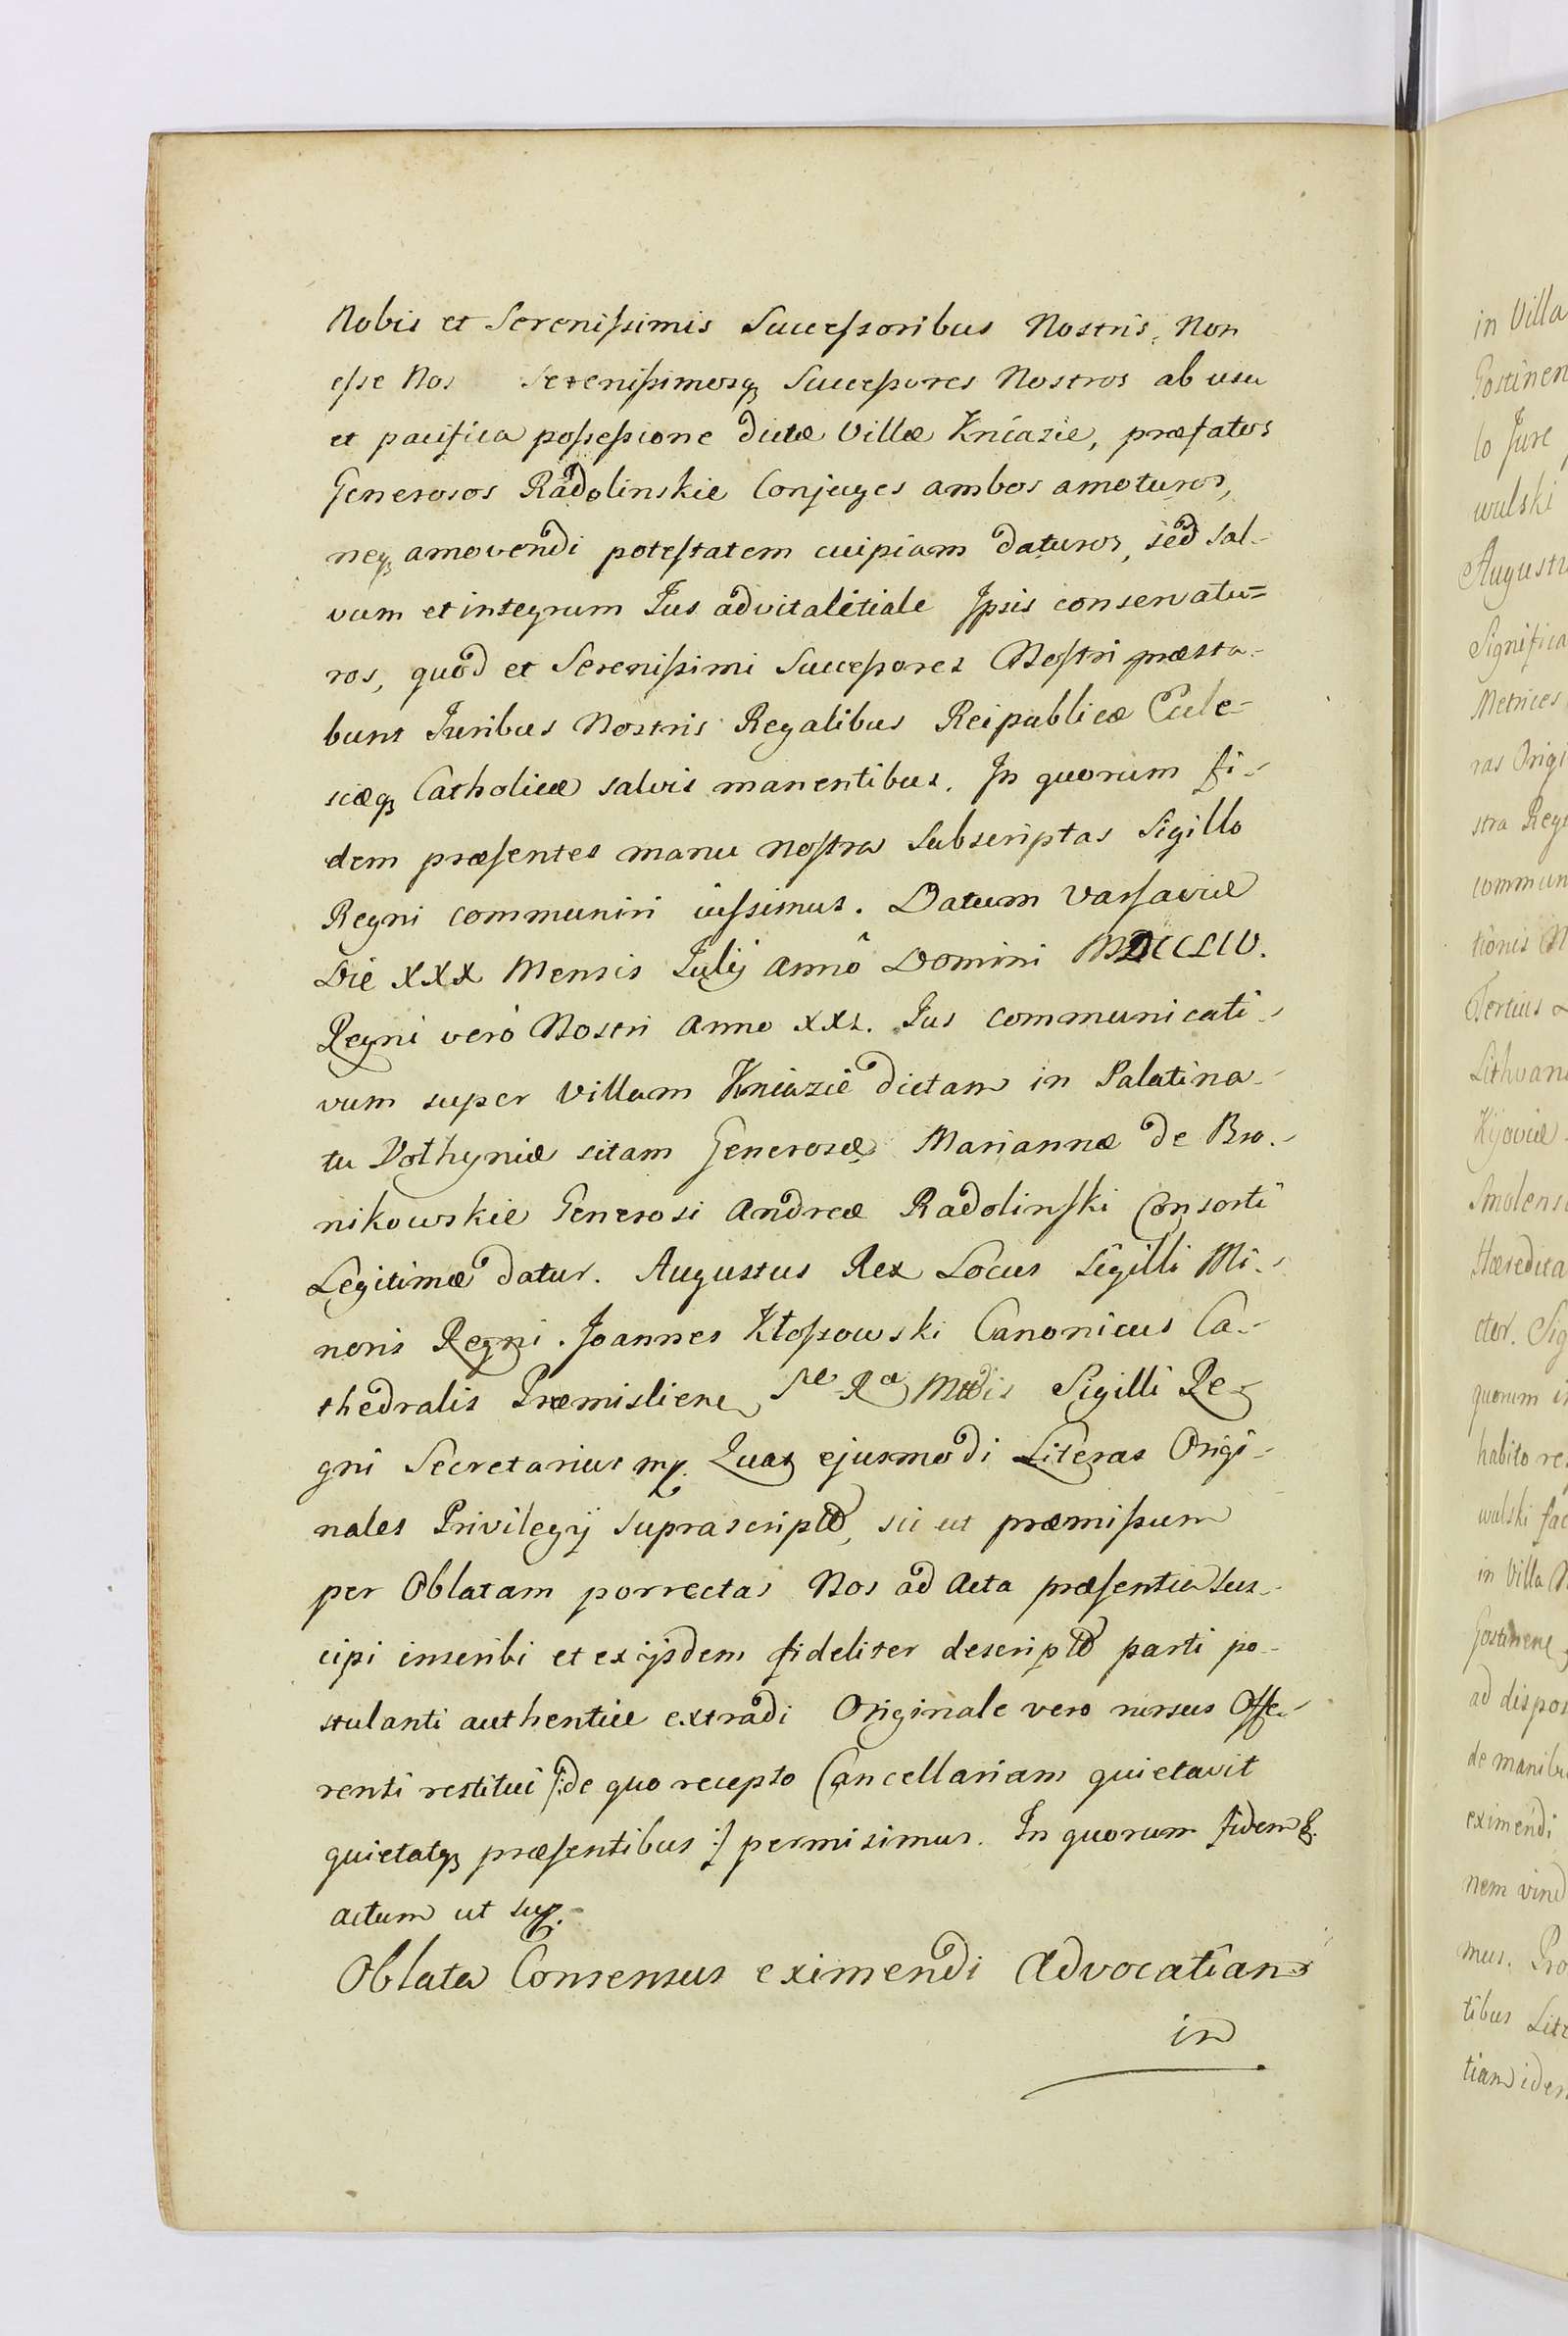 Nobis et Serenissimis Successoribus Nostris, Non
esse Nos Serenissimosq; Successores Nostros ab usu
et pacifica possessione dictæ Villæ Kniazie, præfatos
Generosos Radolinskie Conjuges ambos amoturos,
neq; amovendi potestatem cuipiam daturos, sed sal-
vum et integrum Ius advitalitiale Ipsis conservatu=
ros, quod et Serenissimi Successores Nostri præsta-
bunt Iuribus Nostris Regalibus Reipublicæ Eccle-
siæq; Catholicæ salvis manentibus. In quorum fi-
dem præsentes manu nostra Subscriptas Sigillo
Regni communiri iussimus. Datum Varsaviæ
Die XXX Mensis Iulij Annô Domini MDCCLIV.
Regni verò Nostri Anno XXI. Ius communicati-
vum super Villam Kniazie dictam in Palatina-
tu Volhyniæ sitam Generosæ Mariannæ de Bro-
nikowskie Generosi Andreæ Radolinski Consorti
Legitimæ datur. Augustus Rex Locus Sigilli Mi-
noris Regni. Joannes Kłossowski Canonicus Ca-
thedralis Præmislien Sæ Ræ Mttis Sigilli Re-
gni Secretarius mp. Quas ejusmodi Literas Origi-
nales Privilegij Suprascripti, sic ut præmissum
per Oblatam porrectas Nos ad Acta præsentia sus-
cipi inscribi et ex ijsdem fideliter descripti parti po-
stulanti authentice extradi Originale vero rursus Offe-
renti restitui /:de quo recepto Cancellariam quietavit
quietatq; præsentibus:/ permisimus. In quorum fidem &.
actum ut sup.
Oblata Consensus eximendi Advocatiam
in
in Villa
Gostinen
lo Jure
wulski
Augustu
Significa
Metrices
ras Origi
stra Reg
commun
tionis M
Tertius
Lithvan
Kijoviæ
Smolens
Hæredita
ctor. Sig
quorum i
habito re
wulski fac
in Villa
Gostinene
ad dispos
de manibu
eximendi
nem vind
mus. Pro
tibus Lit
tiam iden